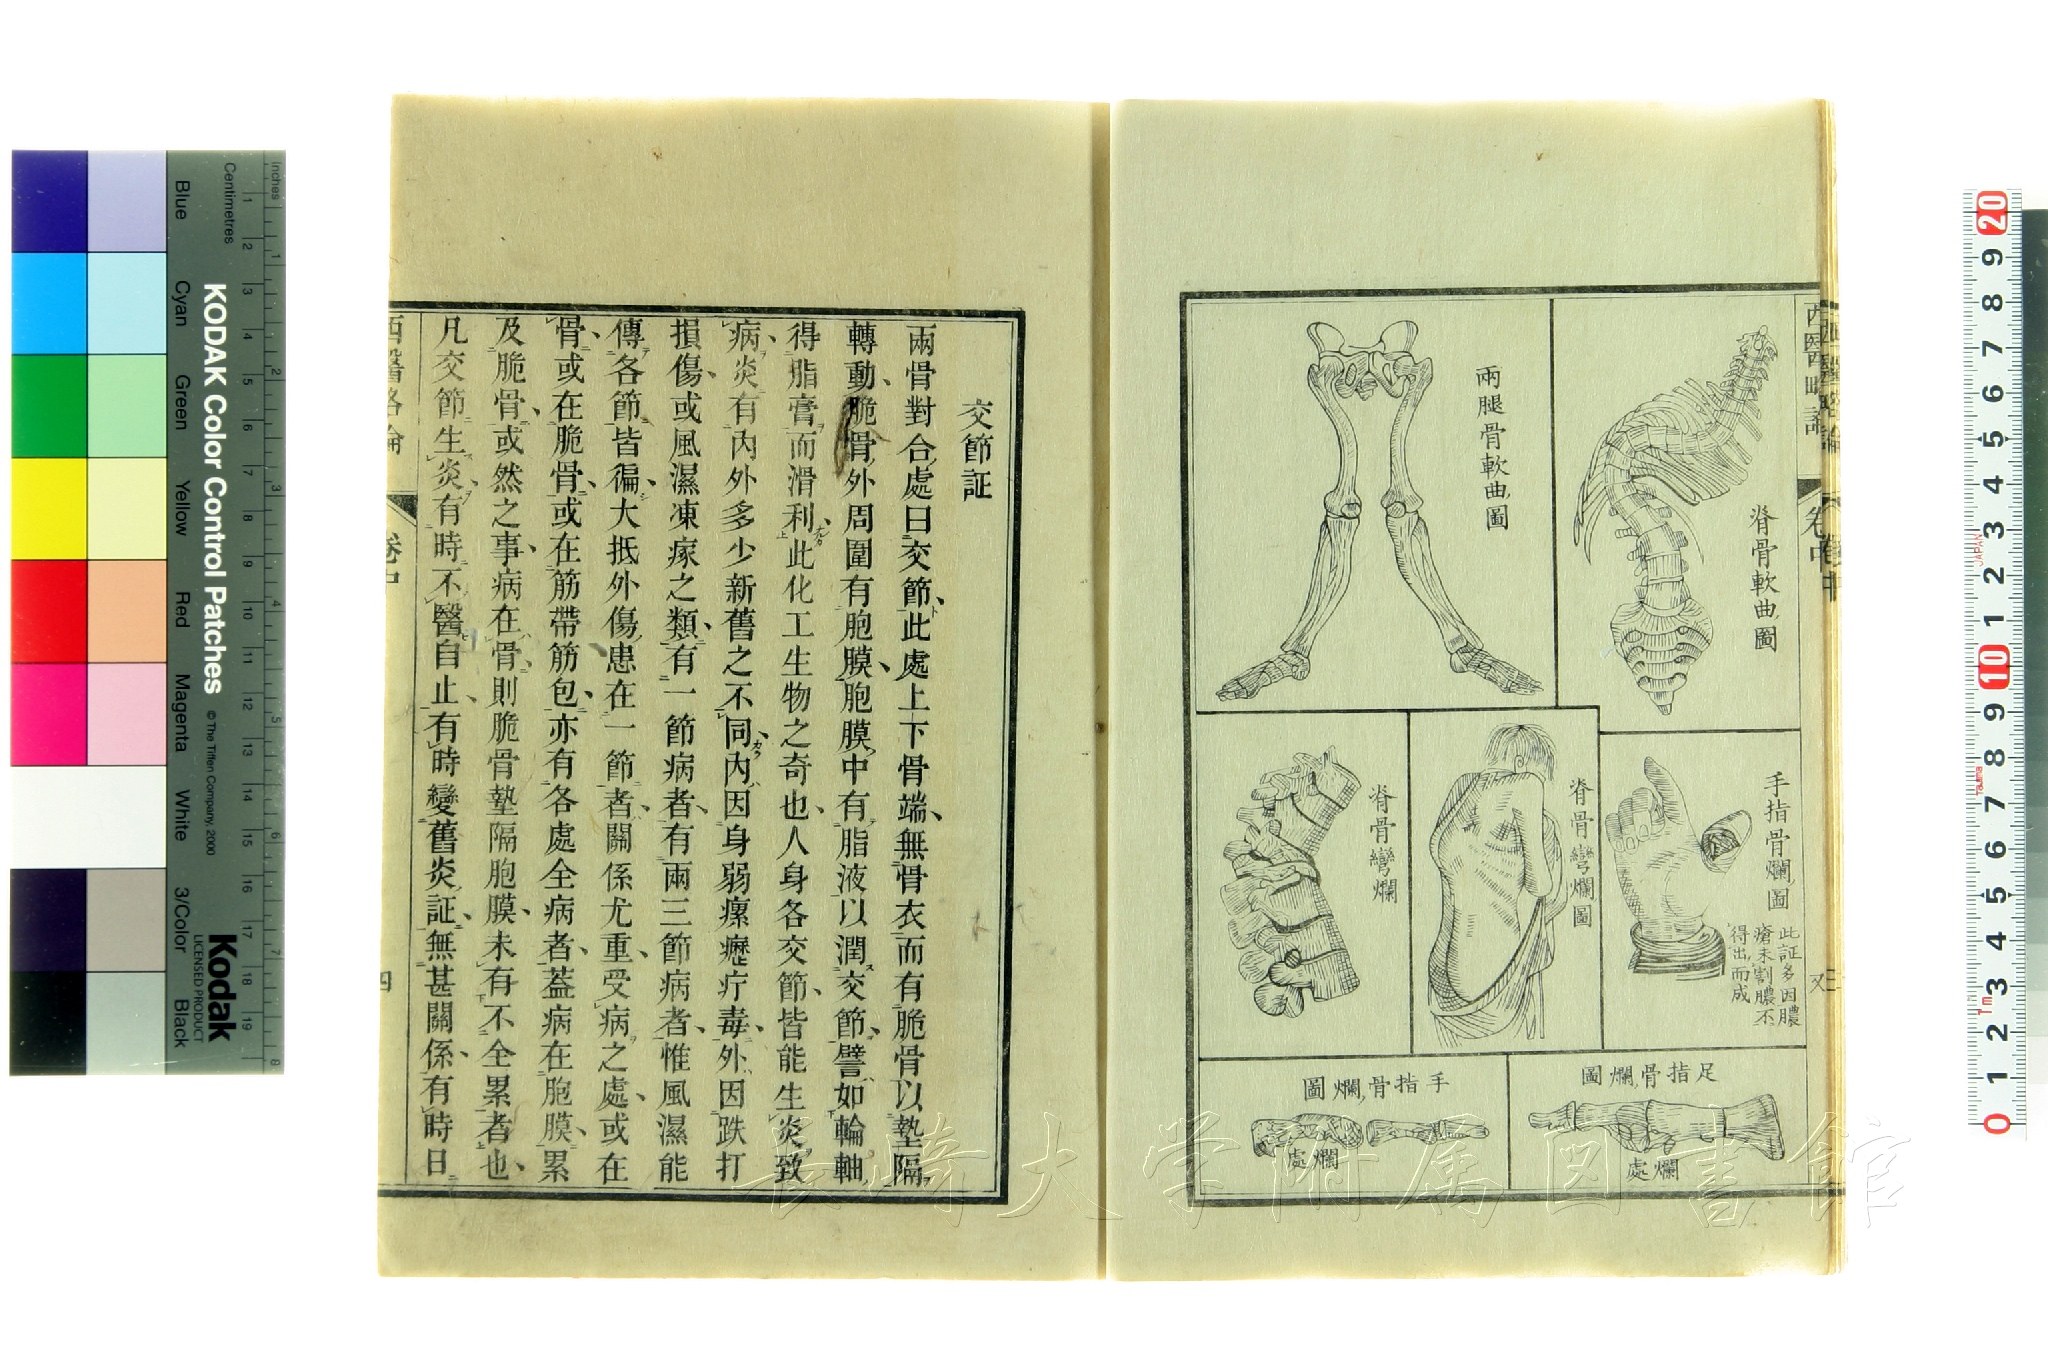 西醫略論
卷中
脊骨軟曲圖
兩腿骨軟曲圖
手指骨爛圖
此証多因膿
瘡未割膿不
得出而成
脊骨彎爛圖
脊骨彎爛
足指骨爛圖
爛處
手指骨爛圖
爛處
交節証
兩骨對合處曰交節此處上下骨端無骨衣而有脆骨以墊隔
轉動脆骨外周圍有胞膜胞膜中有脂液以潤交節譬如輪軸
得脂膏而滑利此化工生物之奇也人身各交節皆能生炎致
病炎有內外多少新舊之不同內因身弱瘰癧疔毒外因跌打
損傷或風濕凍瘃之類有一節病者有兩三節病者惟風濕能
傳各節皆徧大抵外傷患在一節者關係尤重受病之處或在
骨或在脆骨或在筋帶筋包亦有各處全病者蓋病在胞膜累
及脆骨或然之事病在骨則脆骨墊隔胞膜未有不全累者也
凡交節生炎有時不醫自止有時變舊炎証無甚關係有時日
西醫略論
卷中
四
KODAK Color Control Patches
© The Tiffen Company, 2000
Kodak
LICENSED PRODUCT
Inches
Centimetres
Blue
Cyan
Green
Yellow
Red
Magenta
White
3/Color
Black
1 2 3 4 5 6 7 8 9 10 11 12 13 14 15 16 17 18 19
1 2 3 4 5 6 7 8
20 9 8 7 6 5 4 3 2 1 10 9 8 7 6 5 4 3 2 1 0
JAPAN
Tajima
長崎大学附属図書館